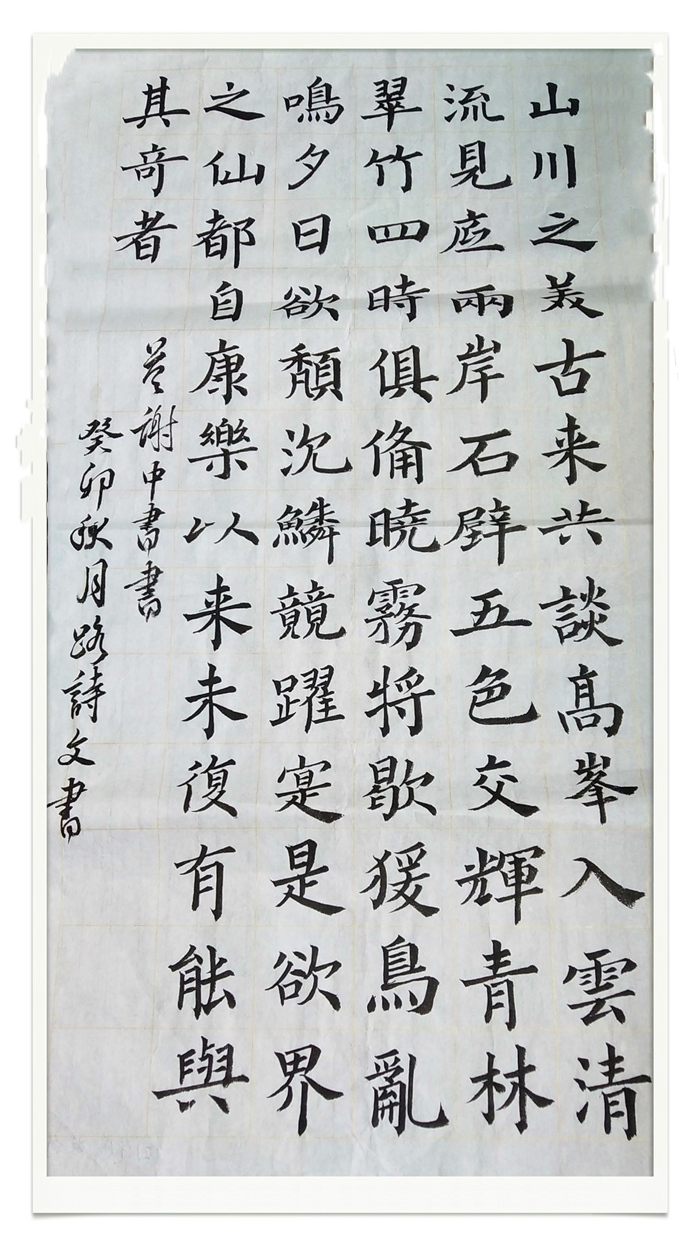 山川之美古来共談髙峯入雲清
流見底兩岸石壁五色交輝青林
翠竹四時俱備曉霧将歇猨鳥亂
鳴夕日欲頽沉鱗競躍寔是欲界
之仙都自康樂以来未復有能與
其奇者
答謝中書書
癸卯秋月路詩文書